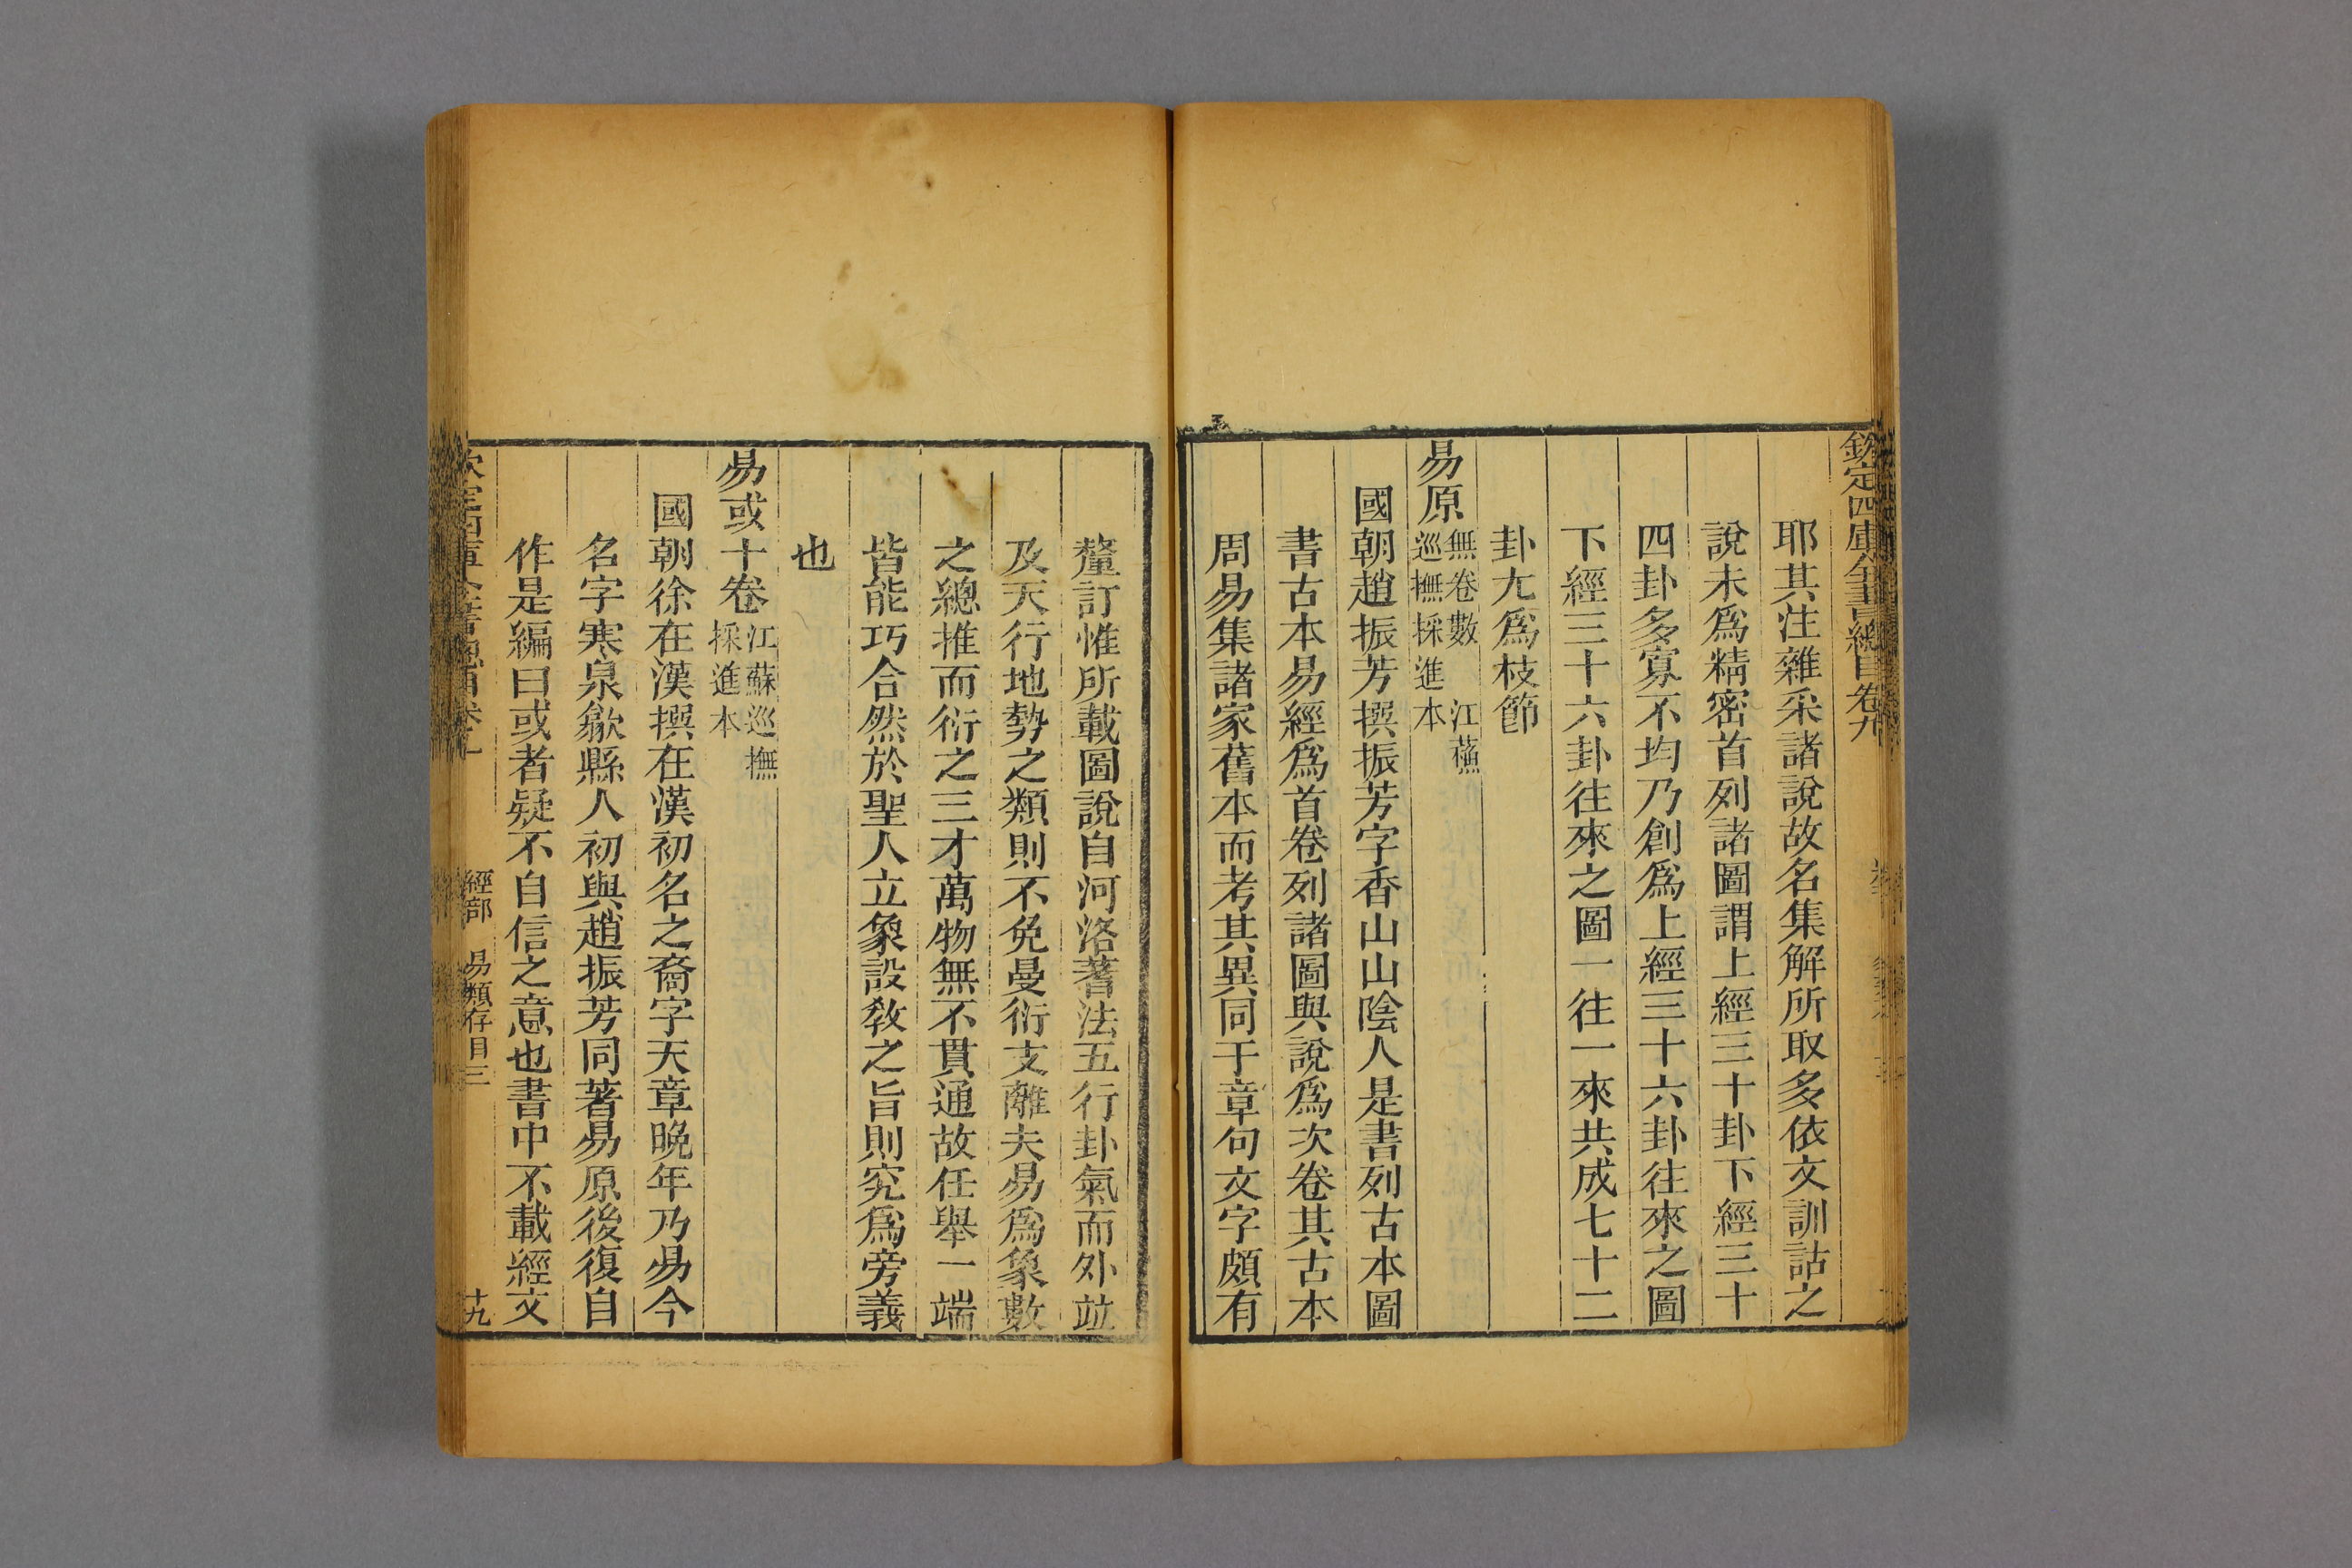 欽定四庫全書總目卷九
耶其注雜采諸說故名集解所取多依文訓詁之
說未為精密首列諸圖謂上經三十卦下經三十
四卦多寡不均乃創為上經三十六卦往來之圖
下經三十六卦往來之圖一往一來共成七十二
卦尢為枝節
易原無卷數 江蘇
巡撫採進本
國朝趙振芳撰振芳字香山山陰人是書列古本圖
書古本易經為首卷列諸圖與說為次卷其古本
周易集諸家舊本而考其異同于章句文字頗有
釐訂惟所載圖說自河洛蓍法五行卦氣而外竝
及天行地勢之類則不免曼衍支離夫易為象數
之總推而衍之三才萬物無不貫通故任舉一端
皆能巧合然於聖人立象設教之旨則究為旁義
也
易或十卷江蘇巡撫
採進本
國朝徐在漢撰在漢初名之裔字天章晚年乃易今
名字寒泉歙縣人初與趙振芳同著易原後復自
作是編曰或者疑不自信之意也書中不載經文
經部 易類存目三
十九